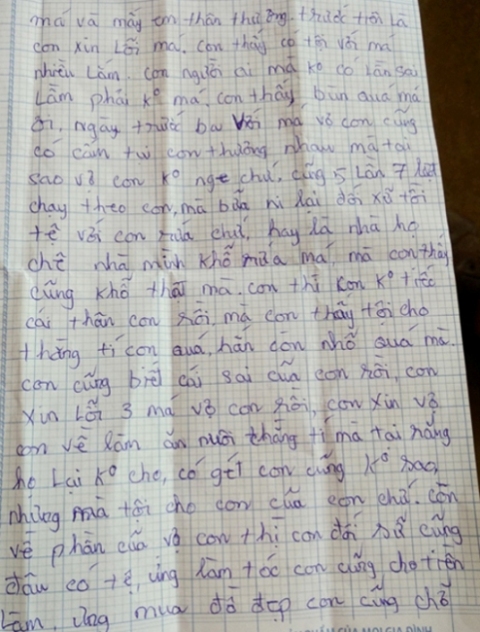 má và mấy em thân thương. trước tiên là
con xin lỗi má. con thấy có tội với má
nhiều lắm. con người ai mà k° có lần sai
lầm phải k° má. con thấy bùn quá má
ơi, ngày trước ba với má vợ con cũng
có cấm tụi con thương nhau mà tại
sao vợ con k° nge chứ, cũng 5 lần 7 lượt
chạy theo con, mà bữa ni lại đối xử tồi
tệ với con rứa chứ, hay là nhà họ
chê nhà mình khổ rứa má, mà con thấy
cũng khổ thật mà. con thì con k° tiếc
cái thân con rồi, mà con thấy tội cho
thằng tí con quá, hắn còn nhỏ quá mà.
con cũng biết cái sai của con rồi, con
xin lỗi 3 má vợ con rồi, con xin vợ
con về làm ăn nuôi thằng tí mà tại răng
họ lại k° cho, có gét con cũng k° sao,
nhưng mà tội cho con của con chứ. còn
về phần của vợ con thì con đối xử cũng
đâu có tệ, ưng làm tóc con cũng cho tiền
làm, ưng mua đồ đẹp con cũng chở